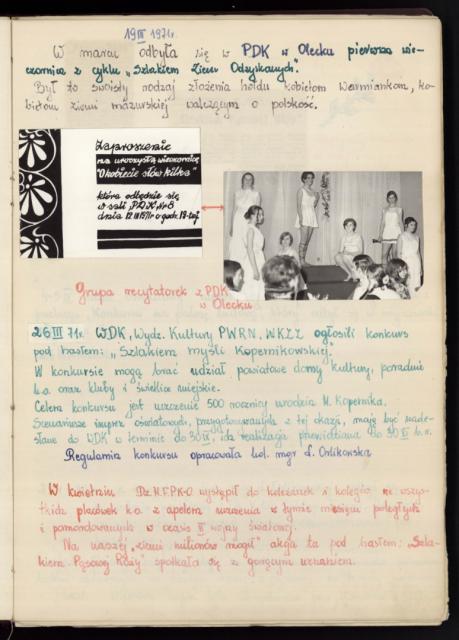 19 III 1971r.
W marcu odbyła się w PDK w Olecku pierwsza wie-
czornica z cyklu „Szlakiem Ziem Odzyskanych".
Był to swoisty rodzaj złożenia hołdu kobietom Warmiankom, ko-
bietom ziemi mazurskiej walczącym o polskość.
Zaproszenie
na uroczystą wieczornicę
"O kobiecie słów kilka"
która odbędzie się
w sali PDK
dnia 12 III 71r o godz. 18-tej
Grupa recytatorek z PDK
w Olecku
26 III 71r. WDK, Wydz. Kultury PWRN, WKZZ ogłosili konkurs
pod hasłem: „Szlakiem myśli Kopernikowskiej.
W konkursie mogą brać udział powiatowe domy kultury, poradnie
k.o. oraz kluby i świetlice wiejskie.
Celem konkursu jest uczczenie 500 rocznicy urodzin M. Kopernika.
Scenariusze imprez oświatowych, przygotowanych z tej okazji, mają być nade-
słane do WDK w terminie do 30 IV, ich realizacja przewidziana do 30 b.r.
Regulamin konkursu opracowała kol. mgr Orlikowska
W kwietniu występił do koleżanek i kolegów ze wszys-
tkich placówek k.o. z apelem uczczenia w tymże miesiącu poległych
i pomordowanych w czasie II wojny światowej.
Na naszej „ziemi milionów mogił" akcja ta pod hasłem: „Szla-
kiem Pąsowej Róży" spotkała się z gorącym uznaniem.